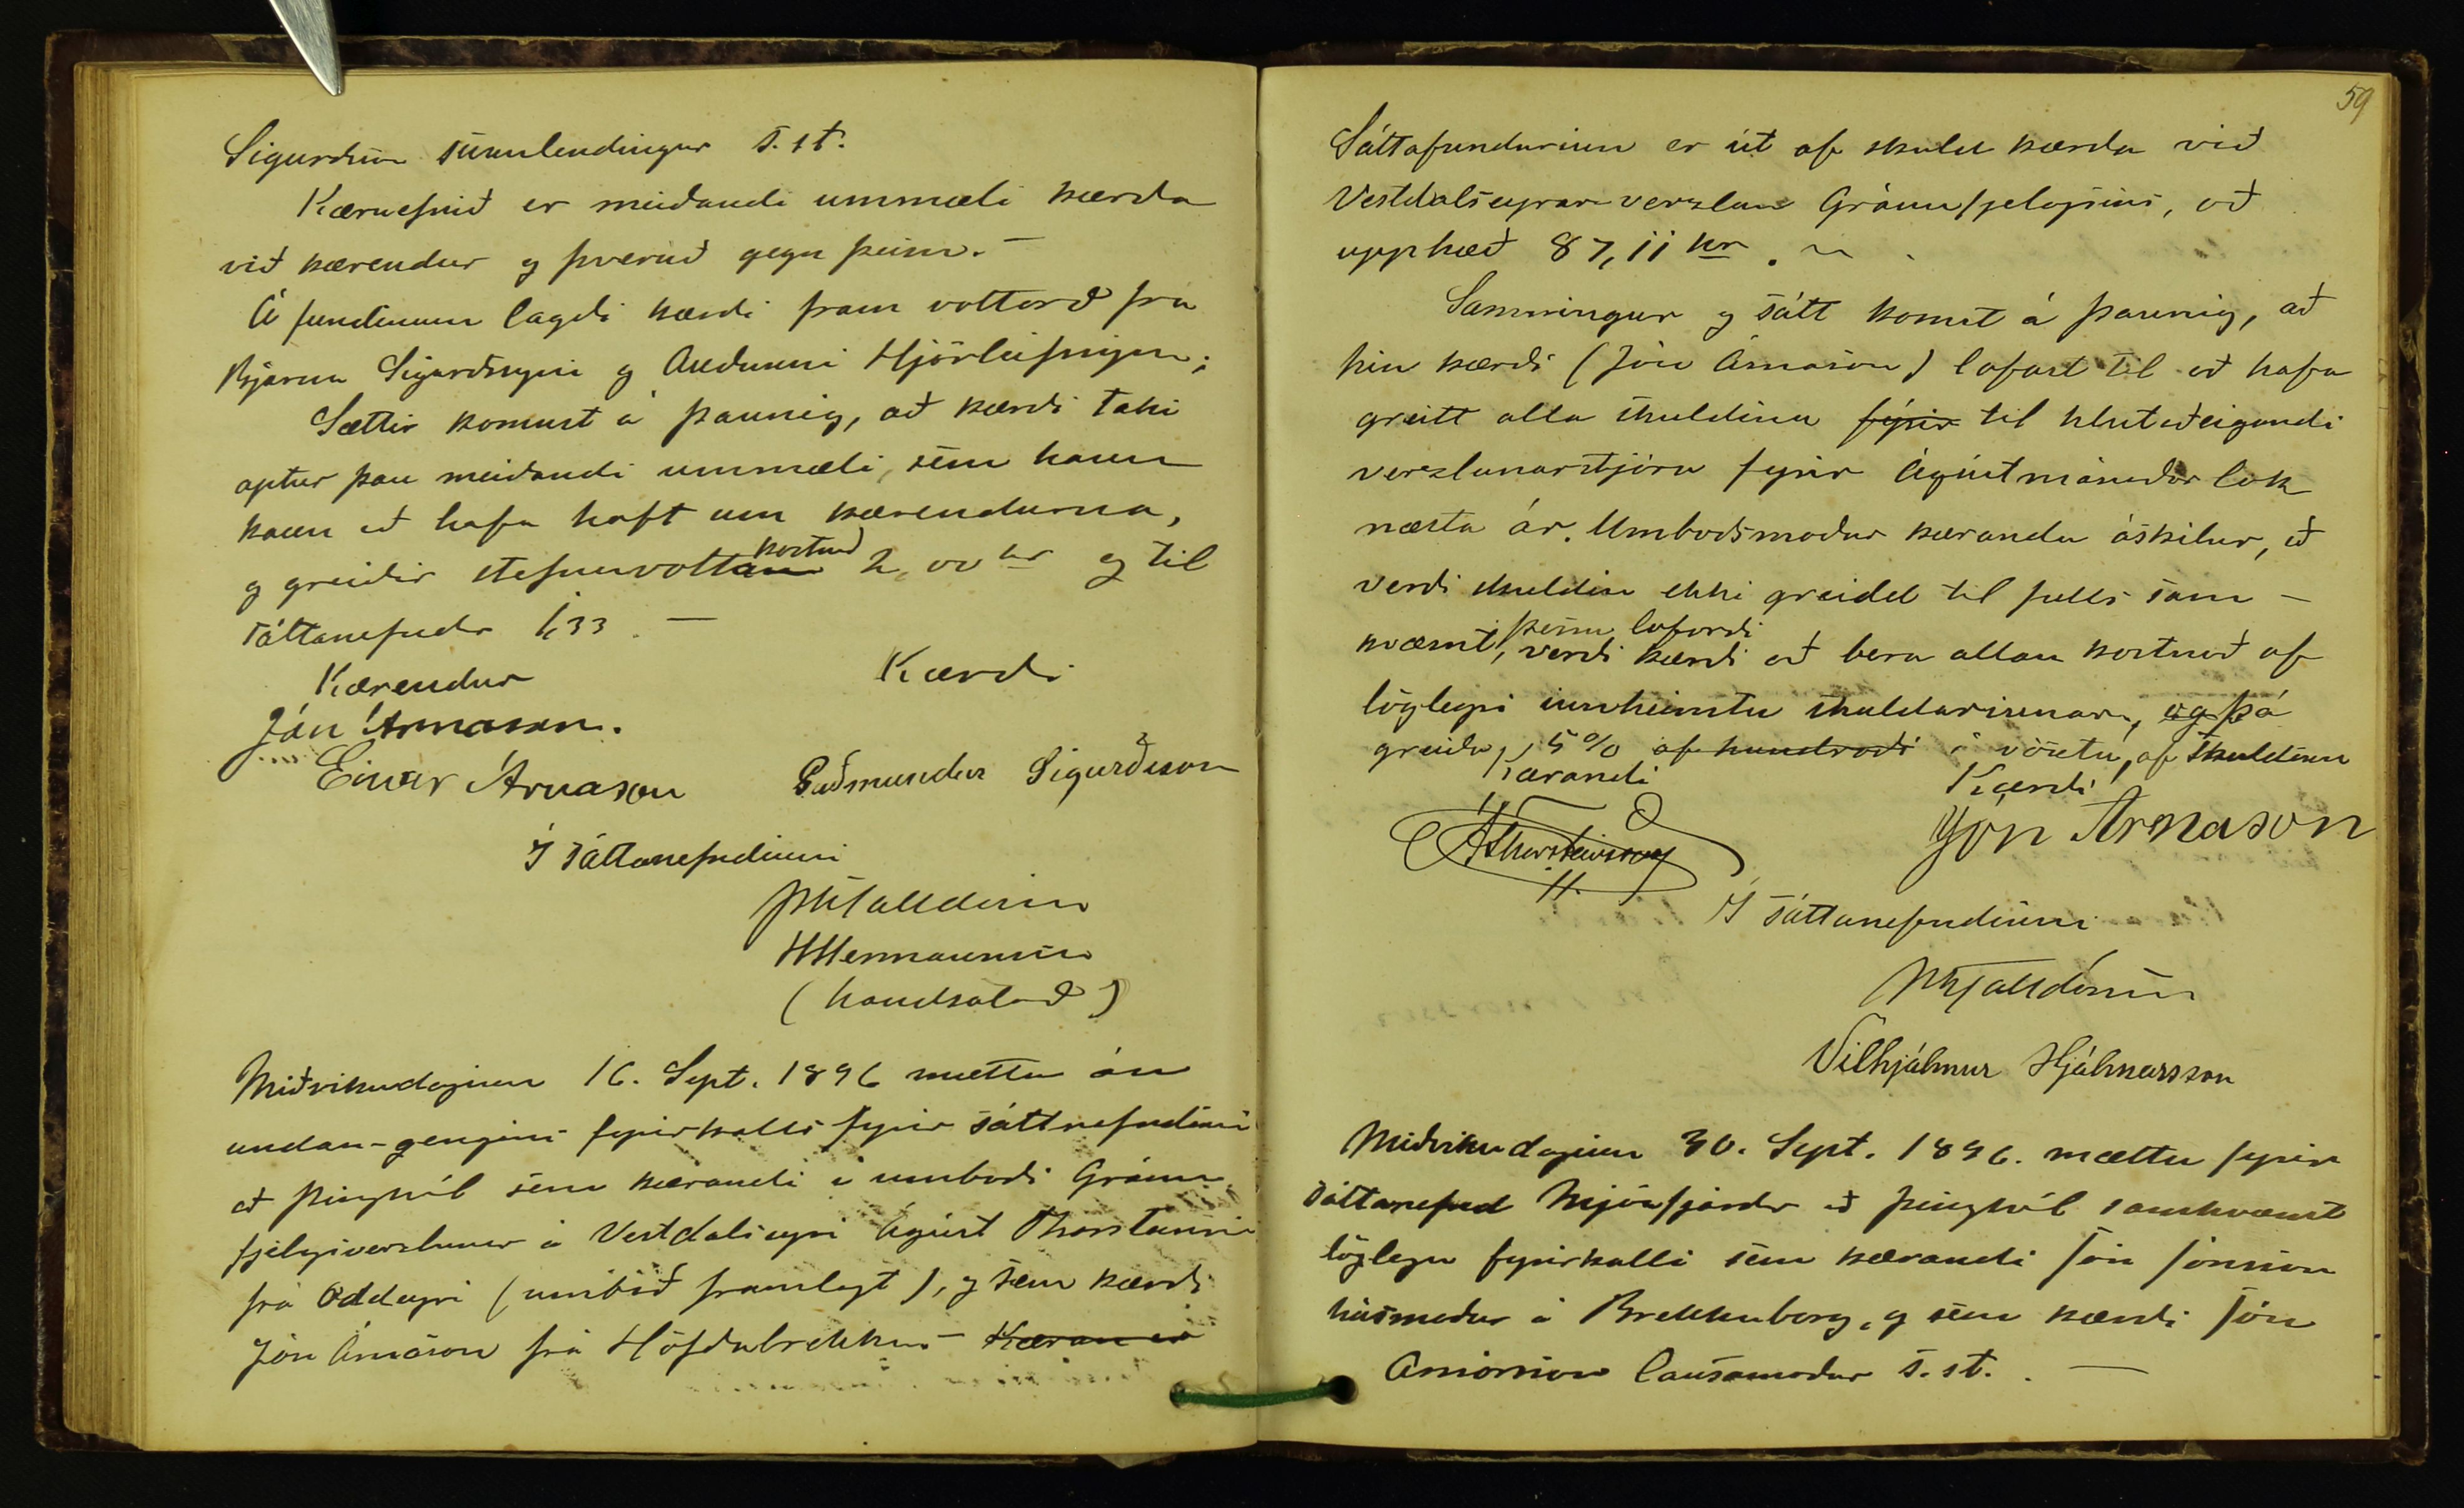 Sigurðsson sunnlendingur s. st.
Kæruefnið er meiðandi ummæli kærða
við kærendur og þverúð gegn þeim. –
Á fundinum lagði kærði fram vottorð frá
Bjarna Sigurðssyni og Auðunni Hjörleifssyni;
Sættir komust á þannig, að kærði taki
aptur þau meiðandi ummæli, sem hann
kann að hafa haft um kærendurna,
kostnað
og greiðir stefnuvotta 2,00 kr og til
sáttanefndar 1,33. –
Kærendur Kærði
Jón Árnason.
Einar Árnason Guðmundur Sigurðsson
Í sáttanefndinni
HHermannsson
(handsalað)
Miðvikudaginn 16. Sept. 1896 mættu án
undan-gengins fyrirkalls fyrir sáttnefndinni
að Þinghól sem kærandi í umboði Gránu
fjelagsverzlunar á Vestdalseyri Ágúst Thorsteinsson
frá Oddeyri (umboð framlagt), og sem kærði
Jón Árnason frá Höfðabrekku – Kæran er
59
Sáttafundurinn er út af skuld kærða við
Vestdalseyrar verzlun Gránufjelagsins, að
upphæð 87,11 kr. ~
Samningur og sátt komst á þannig, að
hin kærði (Jón Árnason) lofast til að hafa
greitt alla skuldina fyrir til hlutaðeigandi
verzlunarstjóra fyrir Ágústmánaðar lok
næsta ár. Umboðsmaður kæranda áskilur, að
verði skuldin ekki greidd til fulls sam –
þessu loforði
kvæmt, verði kærði að bera allan kostnað af
löglegri innheimtu skuldarinnar, og þá
greiða 5% af hundraði í vöxtu, af skuldinni
Kærandi Kærði
AThorsteinsson Jón Árnason
Í sáttanefndinni
Vilhjálmur Hjálmarsson
Miðvikudaginn 30. Sept. 1896. mættu fyrir
sáttanefnd Mjóafjarðar að Þinghól samkvæmt
löglegu fyrirkalli sem kærandi Jón Jónsson
húsmaður á Brekkuborg, og sem kærði Jón
Arnórsson lausamaður s. st. –